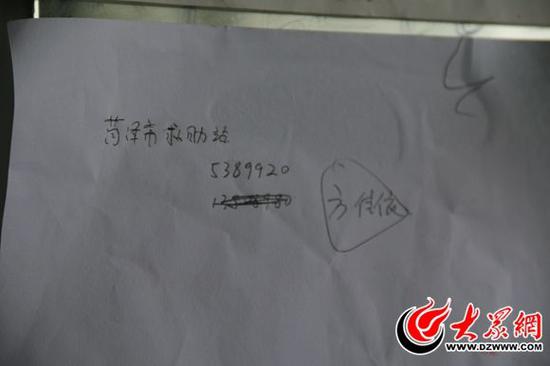 菏泽市救助站
5389920
方佳依
大众網
WWW.DZWWW.COM